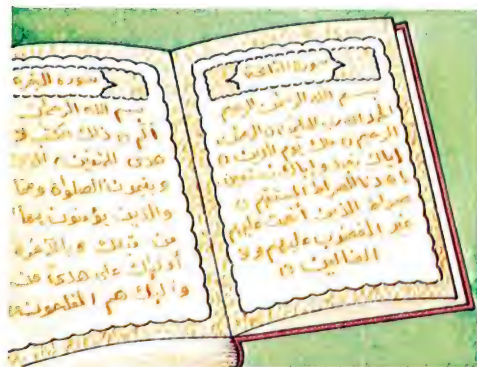 سورة الفاتحة
بسم الله الرحمن الرحيم
الحمد لله رب العلمين ه الرحمن
الرحيم ه ملك يوم الدين ه
إياك نعبد وإياك نستعين
اهدنا الصراط المستقيم ه
صراط الذين أنعمت عليهم
غير المغضوب عليهم ولا
الضالين ه
سورة البقرة
بسم الله الرحمن
الم ه ذلك
هدى للمتقين ه الذين
ويقيمون الصلوة ومما
والذين يؤمنون بما
من قبلك وبالآخرة
أولئك على هدى من
وأولئك هم المفلحون